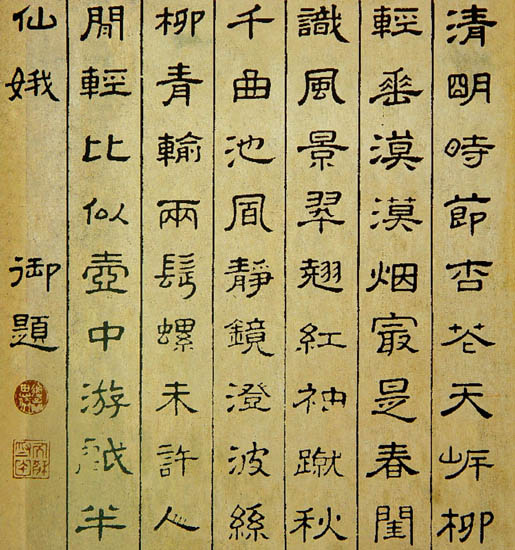 清明時節杏花天岸柳
輕垂漠漠烟最是春閨
識風景翠翹紅袖蹴秋
千曲池面靜鏡澄波絲
柳青輸兩髩螺未許人
閒輕比似壺中游戲半
仙娥 御題